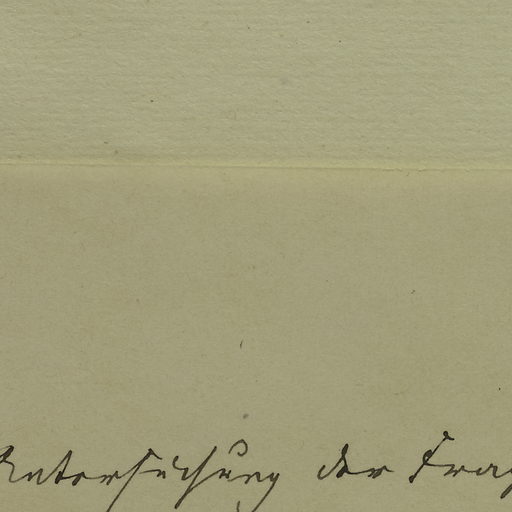 Untersuchung der Frag